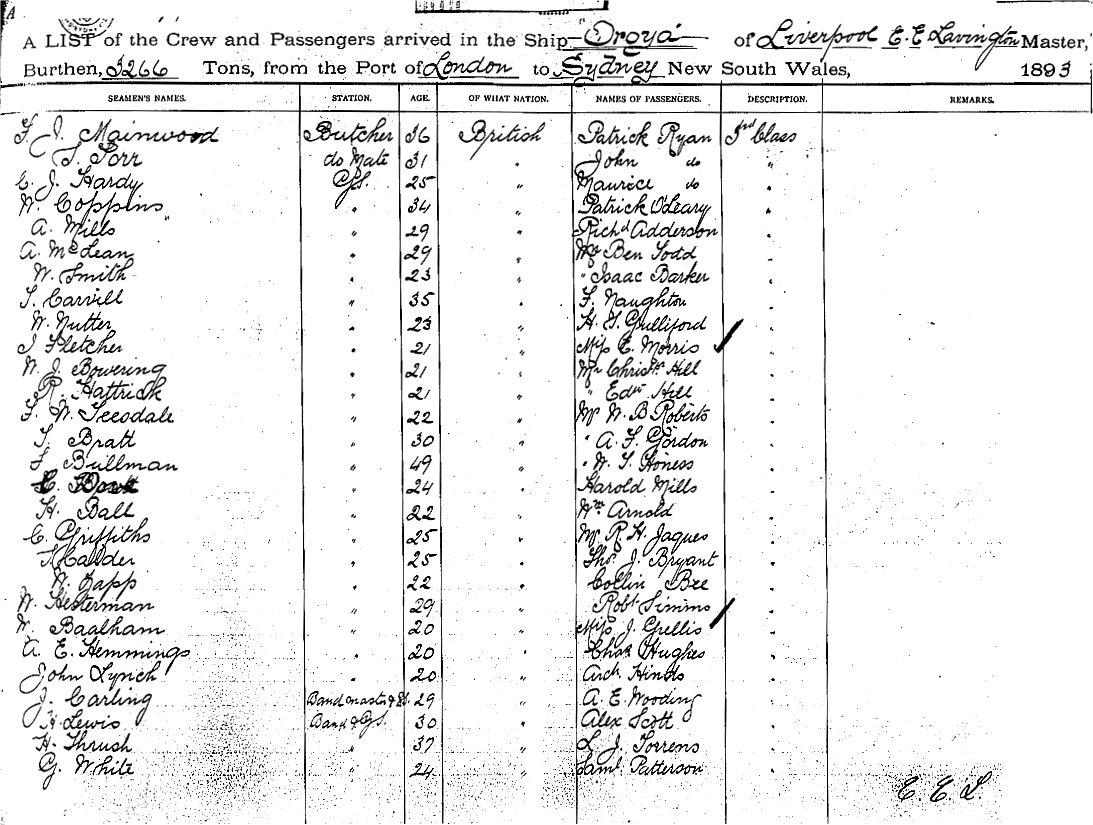 A LIST of the Crew and Passengers arrived in the Ship "Oroya" of Liverpool E. E Lavington Master,
Burthen, 3266 Tons, from the Port of London to Sydney New South Wales, 1893
SEAMEN'S NAMES. STATION. AGE. OF WHAT NATION. NAMES OF PASSENGERS. DESCRIPTION. REMARKS.
F. J. Mainwood Butcher 36 British Patrick Ryan 3rd Class
T. Torr do Mate 31 " John do "
E. J. Hardy G.S. 25 " Maurice do "
W. Coppins " 34 " Patrick O'Leary "
A. Mills " 29 " Richd Adderson "
A. McLean " 29 " Mr Ben Todd "
W. Smith " 23 " " Isaac Barker "
T. Carvill " 35 " F. Naughton "
W. Nutter " 23 " H. T. Gulliford "
J Fletcher " 21 " Miss E. Morris "
W. J. Bowering " 21 " Mr Christr Hill "
R. Hattrick " 21 " " Edwd Hill "
F. W. Teesdale " 22 " Mr W. B Roberts "
T. Bratt " 30 " " A. F. Gordon "
F. Bullman " 49 " " W. T. Honess "
C. " 24 " Harold Mills "
H. Ball " 22 " Wm Arnold "
C. Griffiths " 25 " Mr R. H. Jaques "
J Calder " 25 " Thos J. Bryant "
W. Zapp " 22 " Collin Bee "
W. Hesterman " 29 " Robt Simms "
W. Baalham " 20 " Miss J. Gellis "
A. E. Hemmings " 20 " Chas Hughes "
John Lynch " 20 " Arch. Hinds "
J. Carling Bandmaster & G.S. 29 " A. E. Wooding "
H. Lewis Band & G.S. 30 " Alex Scott "
H. Thrush " 37 " L. J. Torrens "
G. White " 24 " Saml. Patterson "
E. E. L.